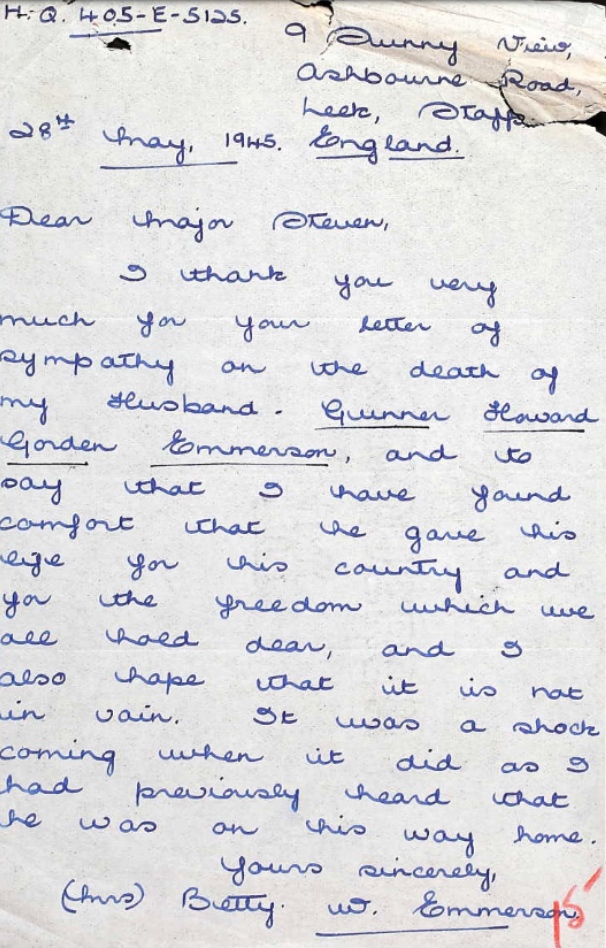 H.Q. 405-E-5125.
9 Sunny View,
Ashbourne Road,
Leek, Staffs
28th May, 1945. England.
Dear Major Steven,
I thank you very
much for your letter of
sympathy on the death of
my Husband - Gunner Howard
Gorden Emmerson, and to
say that I have found
comfort that he gave his
life for his country and
for the freedom which we
all hold dear, and I
also hope that it is not
in vain. It was a shock
coming when it did as I
had previously heard that
he was on his way home.
Yours sincerely,
(Mrs) Betty. W. Emmerson.